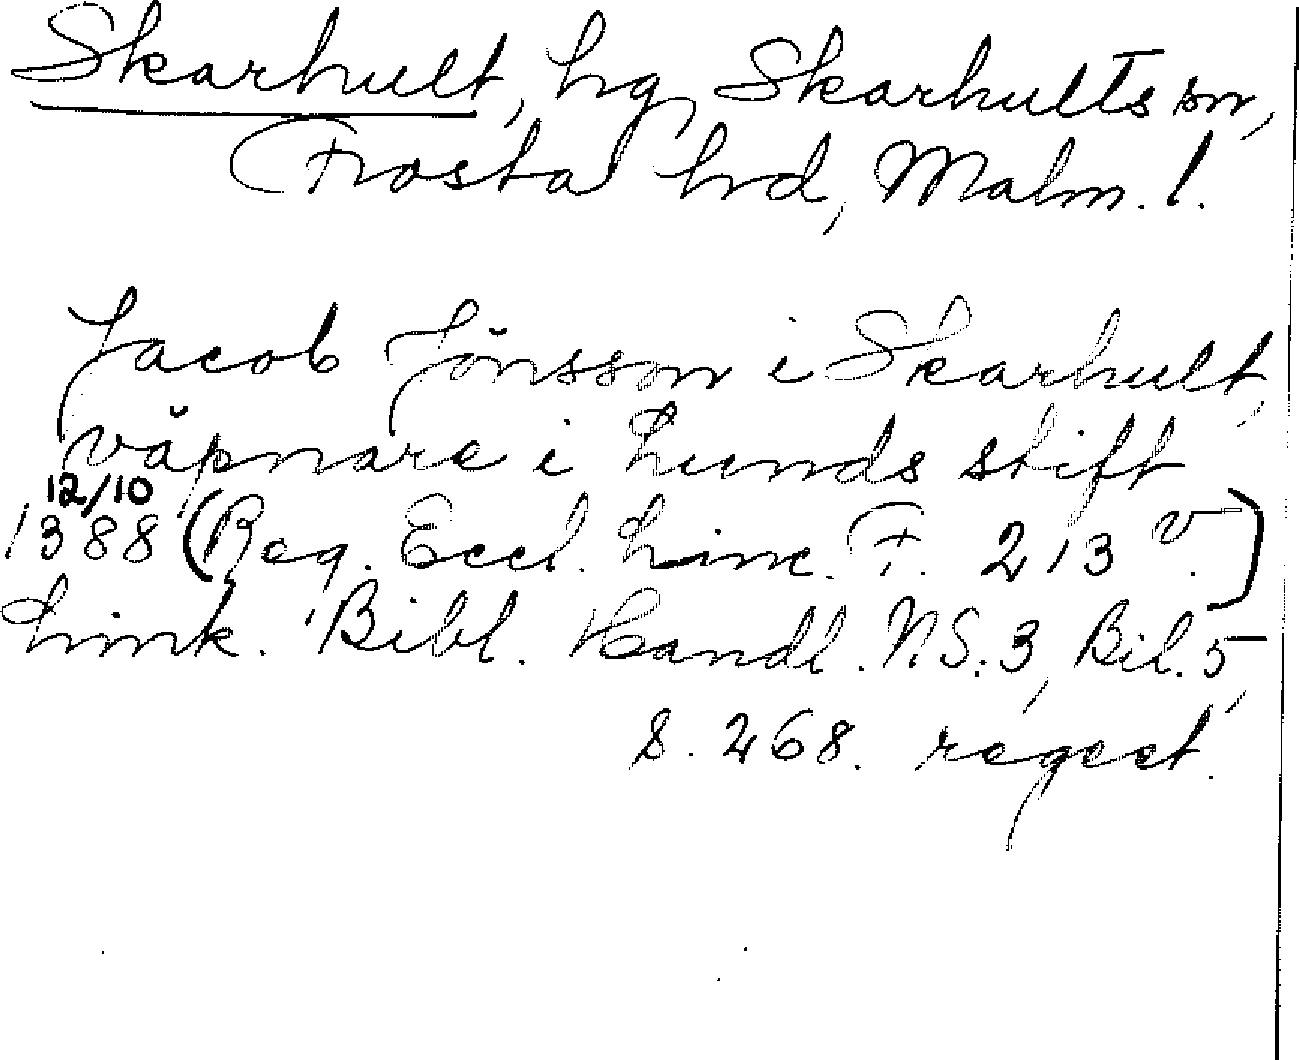 Skarhult, hg, Skarhults sn,
Frosta hd, Malm. l.
Jacob Jönsson i Skarhult,
väpnare i Lunds stift
12/10
1388 (Reg. Eccl. Linc. F. 213 v.)
Link. Bibl. Handl. N.S. 3, Bil. 5,
s. 268. regest.